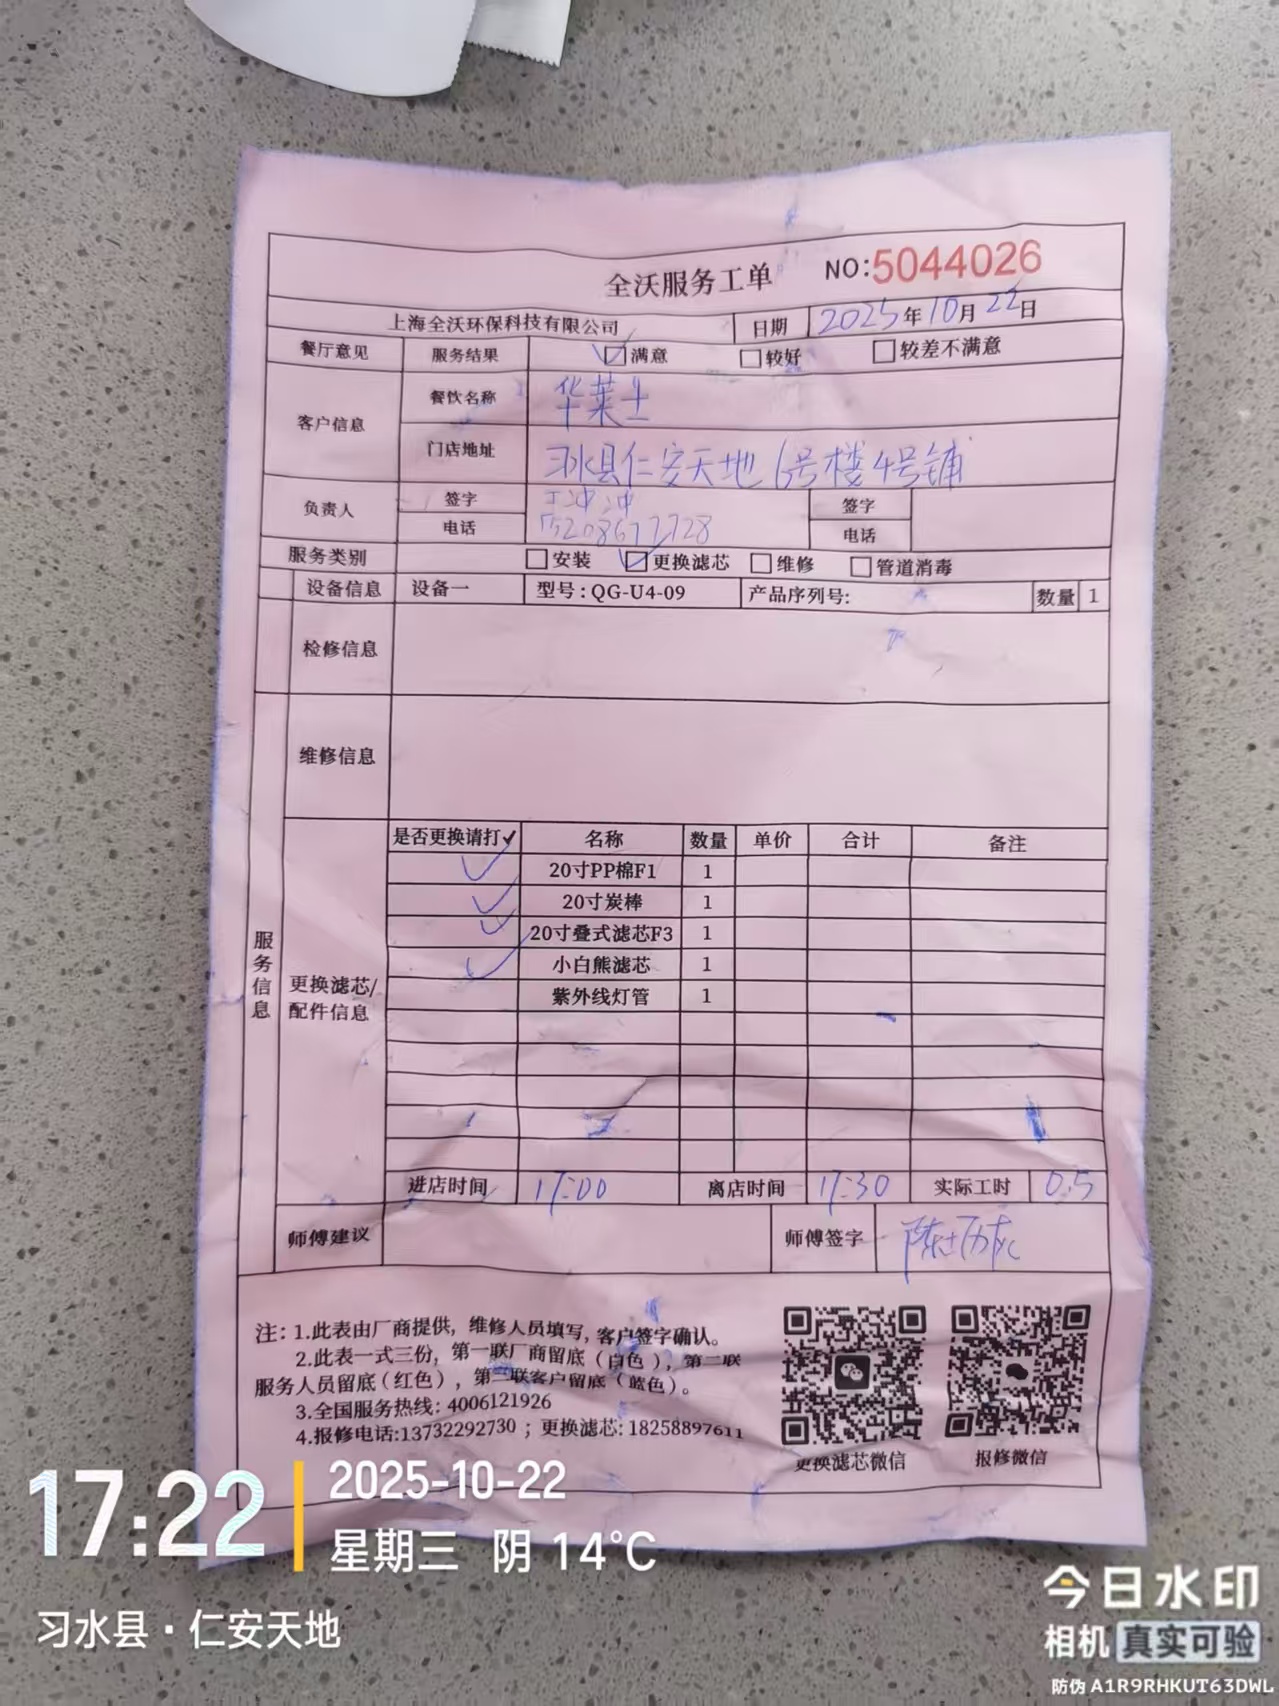 全沃服务工单 NO:5044026
上海全沃环保科技有限公司 日期 2025年10月22日
餐厅意见 服务结果 ☑满意 □较好 □较差不满意
客户信息 餐饮名称 华莱士
门店地址 习水县仁安天地6号楼4号铺
负责人 签字 王冲冲 签字
电话 15208677728 电话
服务类别 □安装 ☑更换滤芯 □维修 □管道消毒
设备信息 设备一 型号:QG-U4-09 产品序列号: 数量 1
检修信息
维修信息
服务信息
更换滤芯/配件信息
是否更换请打✓ 名称 数量 单价 合计 备注
✓ 20寸PP棉F1 1
✓ 20寸炭棒 1
✓ 20寸叠式滤芯F3 1
✓ 小白熊滤芯 1
紫外线灯管 1
进店时间 17:00 离店时间 17:30 实际工时 0.5
师傅建议 师傅签字
注:1.此表由厂商提供,维修人员填写,客户签字确认。
2.此表一式三份,第一联厂商留底(白色),第二联
服务人员留底(红色),第三联客户留底(蓝色)。
3.全国服务热线:4006121926
4.报修电话:13732292730;更换滤芯:18258897611
更换滤芯微信 报修微信
17:22 2025-10-22
星期三 阴 14°C
习水县·仁安天地
今日水印
相机 真实可验
防伪 A1R9RHKUT63DWL